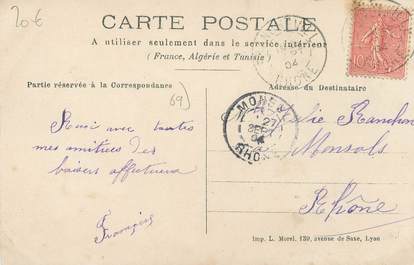 20€
CARTE POSTALE
A utiliser seulement dans le service intérieur
(France, Algérie et Tunisie)
Partie réservée à la Correspondance
Adresse du Destinataire
69)
04
RHONE
10
27
SEPT
04
RHONE
avec toutes
mes amitiées des
baisers affectueux
Françoise
Monsols
Rhône
Imp. L. Morel. 139, avenue de Saxe, Lyon